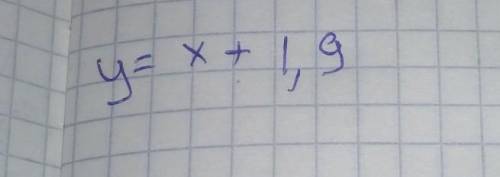 y = x + 1,9